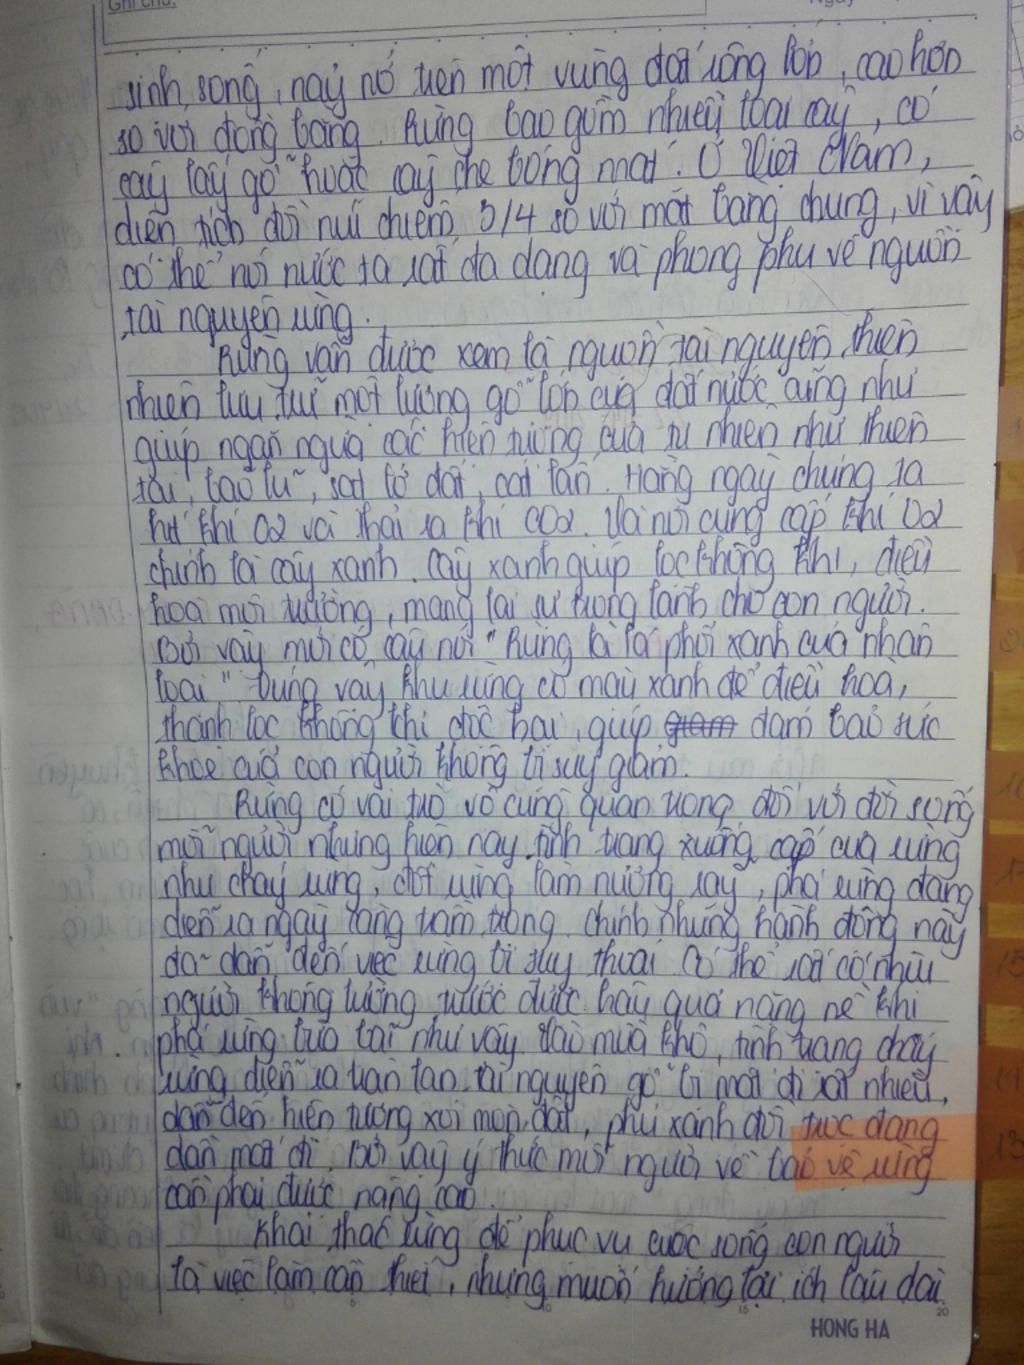 Ghi chú:
sinh sống, nảy nở trên một vùng đất rộng lớn, cao hơn
so với đồng bằng. Rừng bao gồm nhiều loại cây, có
cây lấy gỗ hoặc cây che bóng mát. Ở Việt Nam,
diện tích đồi núi chiếm 3/4 so với mặt bằng chung, vì vậy
có thể nói nước ta rất đa dạng và phong phú về nguồn
tài nguyên rừng.
Rừng vẫn được xem là nguồn tài nguyên thiên
nhiên lưu trữ một lượng gỗ lớn của đất nước cũng như
giúp ngăn ngừa các hiện tượng của tự nhiên như thiên
tai, bão lũ, sạt lở đất, cát lấn. Hằng ngày chúng ta
hút khí O2 và thải ra khí CO2. Và nơi cung cấp khí O2
chính là cây xanh. Cây xanh giúp lọc không khí, điều
hoà môi trường, mang lại sự trong lành cho con người.
Bởi vậy mới có câu nói "Rừng là lá phổi xanh của nhân
loại" Đúng vậy khu rừng có màu xanh để điều hoà,
thanh lọc không khí độc hại, giúp giảm đảm bảo sức
khỏe của con người không bị suy giảm.
Rừng có vai trò vô cùng quan trọng đối với đời sống
mỗi người nhưng hiện nay tình trạng xuống cấp của rừng
như cháy rừng, đốt rừng làm nương rẫy, phá rừng đang
diễn ra ngày càng trầm trọng. Chính những hành động này
đã dẫn đến việc rừng bị suy thoái. Có thể rất có nhiều
người không lường trước được hậu quả nặng nề khi
phá rừng bừa bãi như vậy. Vào mùa khô, tình trạng cháy
rừng diễn ra tràn lan, tài nguyên gỗ bị mất đi rất nhiều,
dẫn đến hiện tượng xói mòn đất, phủ xanh đồi trọc đang
dần mất đi. Bởi vậy ý thức mỗi người về bảo vệ rừng
cần phải được nâng cao.
Khai thác rừng để phục vụ cuộc sống con người
là việc làm cần thiết, nhưng muốn hướng lại ích lâu dài
HONG HA